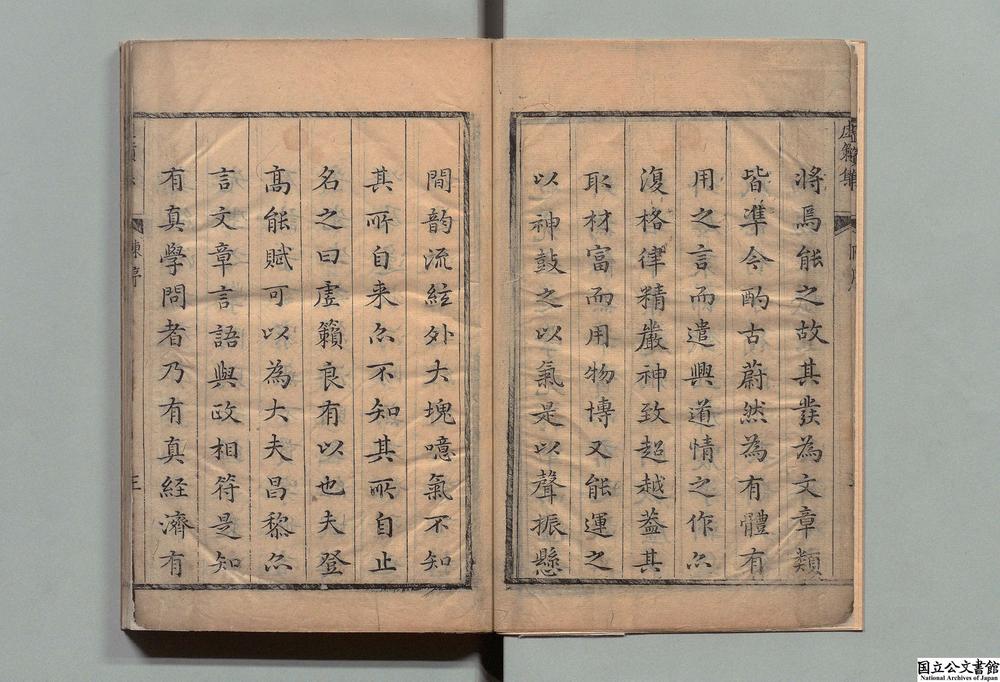 將焉能之故其發為文章類
皆準今酌古蔚然為有體有
用之言而遣興道情之作亦
復格律精嚴神致超越葢其
取材富而用物博又能運之
以神鼓之以氣是以聲振懸
間韵流絃外大塊噫氣不知
其所自来亦不知其所自止
名之曰虗籟良有以也夫登
高能賦可以為大夫昌黎亦
言文章言語與政相符是知
有真學問者乃有真経濟有
三
国立公文書館
National Archives of Japan